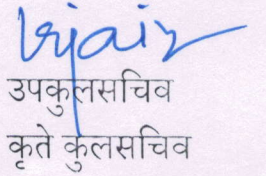 उपकुलसचिव
कृते कुलसचिव